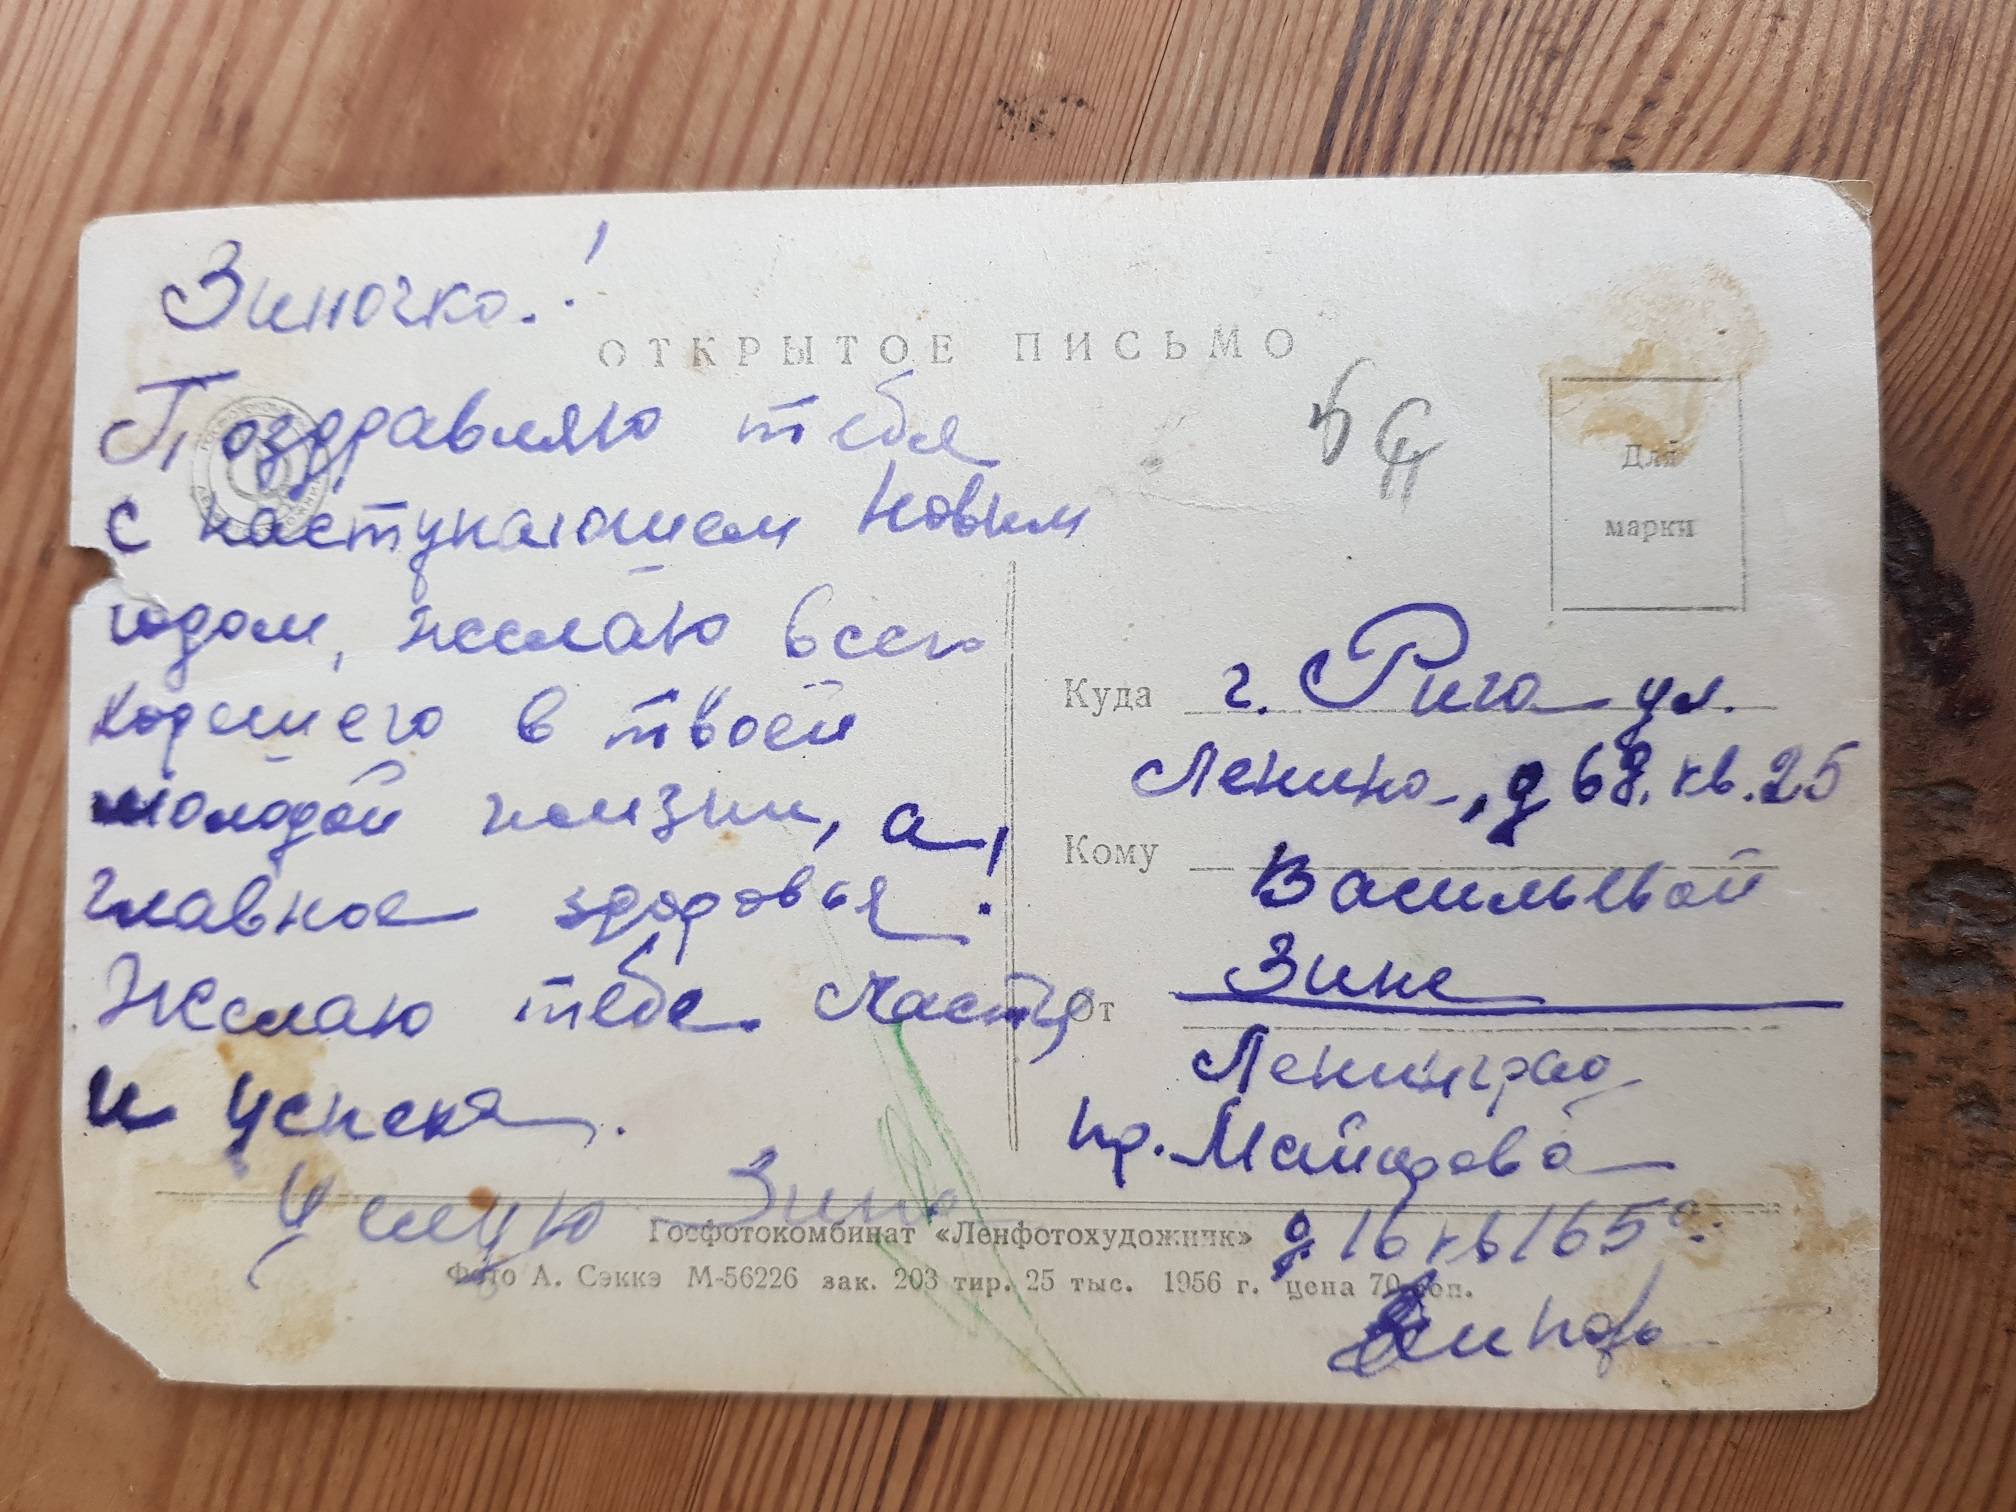 Зиночка!
ОТКРЫТОЕ ПИСЬМО
Поздравляю тебя
с наступающем Новым
годом, желаю всего
хорошего в твоей
молодой жизни, а
главное здоровья!
Желаю тебе счастя
и успеха.
Целую Зина
Для
марки
Куда г. Рига ул.
Ленина, д 68. кв. 25
Кому Васильевой
Зине
От
Ленинград
пр. Майорова
д 16 кв 165
Госфотокомбинат «Ленфотохудожник»
Фото А. Сэккэ М-56226 зак. 203 тир. 25 тыс. 1956 г. цена 70 коп.